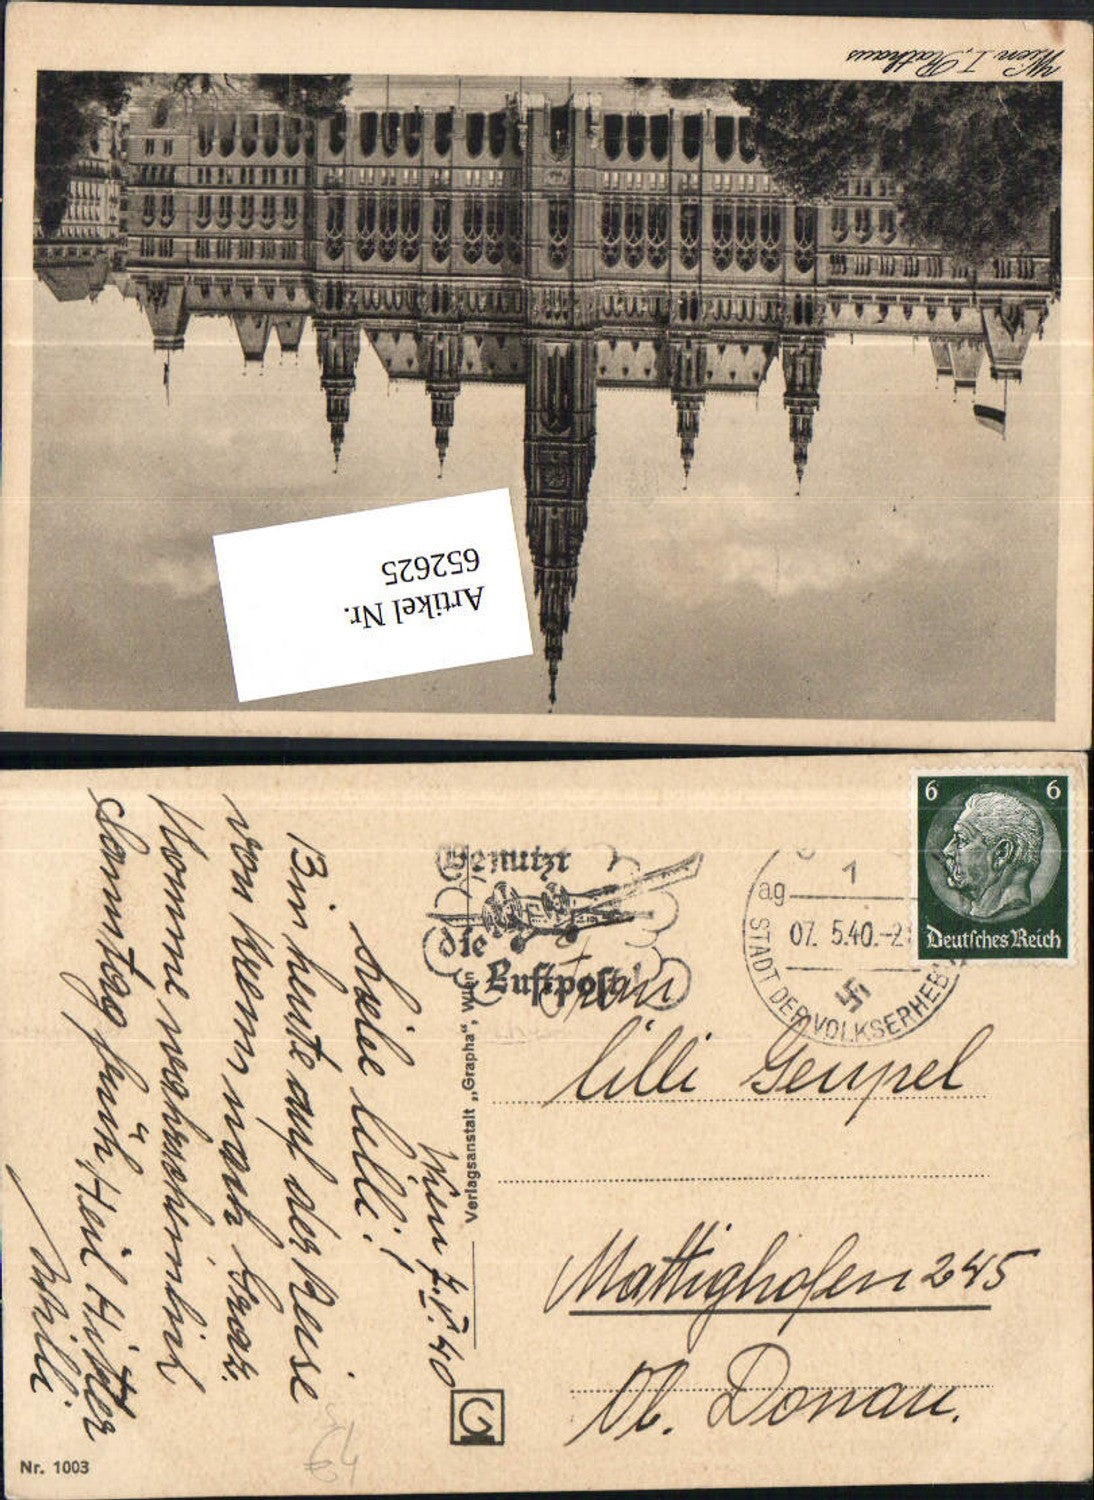 Wien I, Rathaus
Artikel Nr.
652625
6 6
Deutsches Reich
Benutzt
die
Luftpost
1
ag
07. 5.40.-2
STADT DER VOLKSERHEB
Frau
Lilli Geupel
Mattighofen 245
Ob. Donau.
Verlagsanstalt „Grapha", Wien
Wien 7.V.40
Liebe Lilli!
Bin heute auf der Reise
von Krems nach Graz.
Komme wahrscheinlich
Sonntag früh, Heil Hitler
Willi
G
Nr. 1003